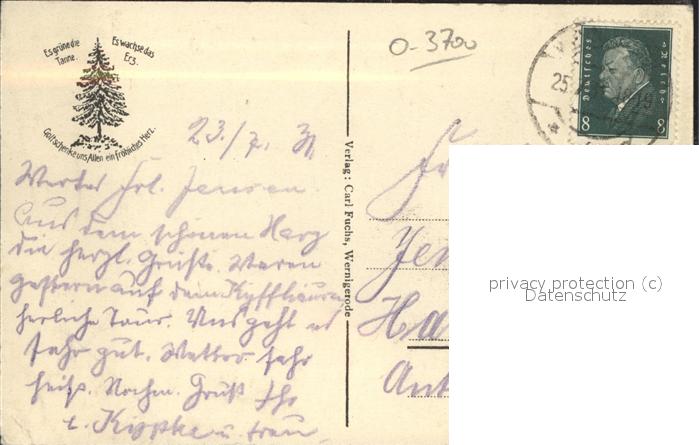 Es grüne die
Tanne.
Es wachse das
Erz.
Gott schenke uns Allen ein fröhliches Herz.
O-3700
Deutsches Reich
8 8
25
23./7. 31
Wertes Frl. Jensen
Aus dem schönen Harz
die herzl. Grüße. Waren
gestern auf dem Kyffhäuser
herrliche Tour. Uns geht es
sehr gut. Wetter sehr
heiß. Nochm. Gruß Ihr
Kippke u. Frau
Verlag: Carl Fuchs, Wernigerode
Jen
Ha
privacy protection (c)
Datenschutz